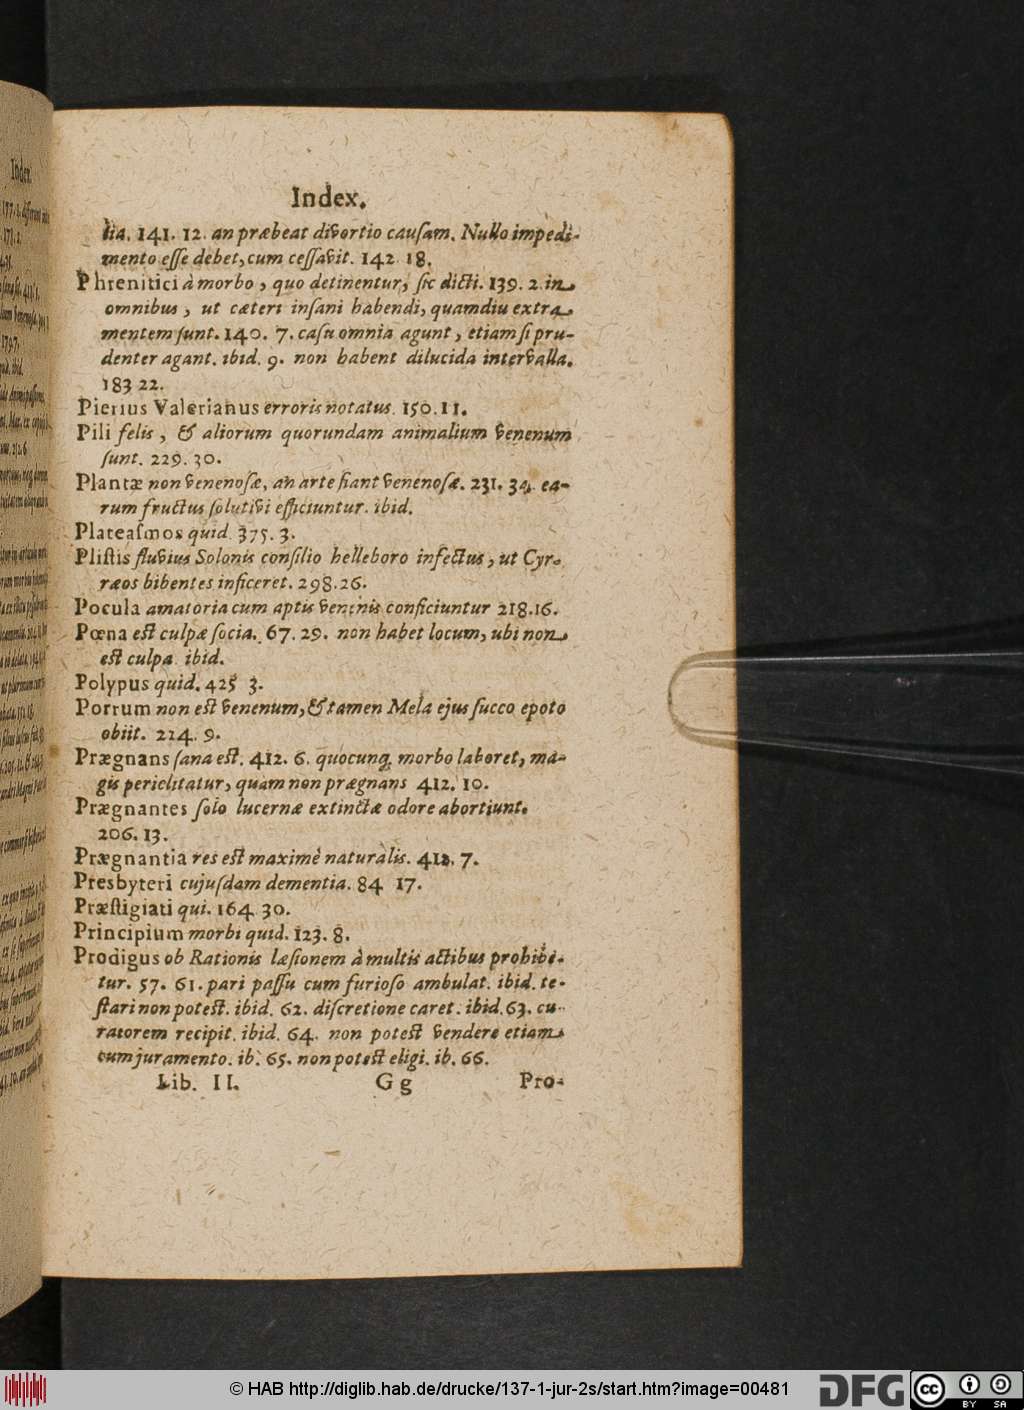 Index.
lia. 141. 12. an præbeat divortio cauſam. Nullo impedi-
mento eſſe debet, cum ceſſavit. 142 18.
Phrenitici à morbo, quo detinentur, ſic dicti. 139. 2. in
omnibus, ut cæteri inſani habendi, quamdiu extra
mentem ſunt. 140. 7. caſu omnia agunt, etiamſi pru-
denter agant. ibid. 9. non habent dilucida intervalla.
183 22.
Pierius Valerianus erroris notatus. 150. 11.
Pili felis, & aliorum quorundam animalium venenum
ſunt. 229. 30.
Plantæ non venenoſæ, an arte fiant venenoſæ. 231. 34. ea-
rum fructus ſolutivi efficiuntur. ibid.
Plateaſmos quid. 375. 3.
Pliſtis fluvius Solonis conſilio helleboro infectus, ut Cyr-
ræos bibentes inficeret. 298. 26.
Pocula amatoria cum aptis venenis conficiuntur 218. 16.
Pœna eſt culpæ ſocia. 67. 29. non habet locum, ubi non
eſt culpa. ibid.
Polypus quid. 425 3.
Porrum non eſt venenum, & tamen Mela ejus ſucco epoto
obiit. 214. 9.
Prægnans ſana eſt. 412. 6. quocunq; morbo laboret, ma-
gis periclitatur, quam non prægnans 412. 10.
Prægnantes ſolo lucernæ extinctæ odore abortiunt.
206. 13.
Prægnantia res eſt maximè naturalis. 412. 7.
Presbyteri cujuſdam dementia. 84 17.
Præſtigiati qui. 164 30.
Principium morbi quid. 123. 8.
Prodigus ob Rationis læſionem à multis actibus prohibe-
tur. 57. 61. pari paſſu cum furioſo ambulat. ibid. te-
ſtari non poteſt. ibid. 62. diſcretione caret. ibid. 63. cu-
ratorem recipit. ibid. 64. non poteſt vendere etiam
cum juramento. ib. 65. non poteſt eligi. ib. 66.
Lib. II. G g Pro-
© HAB http://diglib.hab.de/drucke/137-1-jur-2s/start.htm?image=00481
DFG
cc BY SA